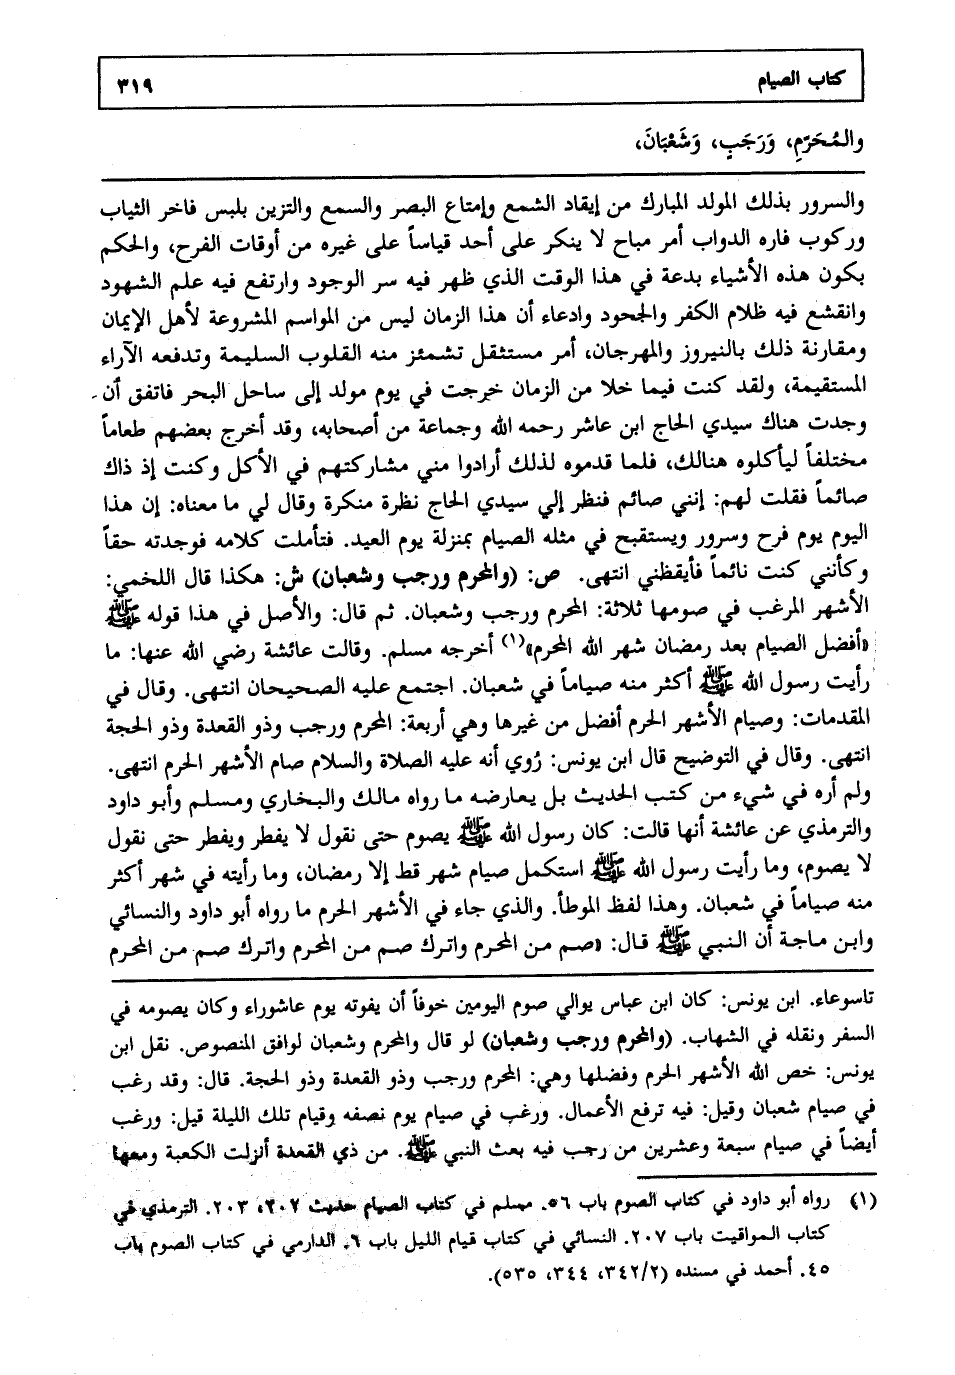 كتاب الصيام
٣١٩
والـمُحَرَّمِ، وَرَجَبٍ، وَشَعْبَانَ،
والسرور بذلك المولد المبارك من إيقاد الشمع وإمتاع البصر والسمع والتزين بلبس فاخر الثياب
وركوب فاره الدواب أمر مباح لا ينكر على أحد قياساً على غيره من أوقات الفرح، والحكم
بكون هذه الأشياء بدعة في هذا الوقت الذي ظهر فيه سر الوجود وارتفع فيه علم الشهود
وانقشع فيه ظلام الكفر والجحود وادعاء أن هذا الزمان ليس من المواسم المشروعة لأهل الإيمان
ومقارنة ذلك بالنيروز والمهرجان، أمر مستثقل تشمئز منه القلوب السليمة وتدفعه الآراء
المستقيمة، ولقد كنت فيما خلا من الزمان خرجت في يوم مولد إلى ساحل البحر فاتفق أن
وجدت هناك سيدي الحاج ابن عاشر رحمه الله وجماعة من أصحابه، وقد أخرج بعضهم طعاماً
مختلفاً ليأكلوه هنالك، فلما قدموه لذلك أرادوا مني مشاركتهم في الأكل وكنت إذ ذاك
صائماً فقلت لهم: إنني صائم فنظر إلي سيدي الحاج نظرة منكرة وقال لي ما معناه: إن هذا
اليوم يوم فرح وسرور ويستقبح في مثله الصيام بمنزلة يوم العيد. فتأملت كلامه فوجدته حقاً
وكأنني كنت نائماً فأيقظني انتهى. ص: (والمحرم ورجب وشعبان) ش: هكذا قال اللخمي:
الأشهر المرغب في صومها ثلاثة: المحرم ورجب وشعبان. ثم قال: والأصل في هذا قوله ﷺ
«أفضل الصيام بعد رمضان شهر الله المحرم»(١) أخرجه مسلم. وقالت عائشة رضي الله عنها: ما
رأيت رسول الله ﷺ أكثر منه صياماً في شعبان. اجتمع عليه الصحيحان انتهى. وقال في
المقدمات: وصيام الأشهر الحرم أفضل من غيرها وهي أربعة: المحرم ورجب وذو القعدة وذو الحجة
انتهى. وقال في التوضيح قال ابن يونس: رُوي أنه عليه الصلاة والسلام صام الأشهر الحرم انتهى.
ولم أره في شيء من كتب الحديث بل يعارضه ما رواه مالك والبخاري ومسلم وأبو داود
والترمذي عن عائشة أنها قالت: كان رسول الله ﷺ يصوم حتى نقول لا يفطر ويفطر حتى نقول
لا يصوم، وما رأيت رسول الله ﷺ استكمل صيام شهر قط إلا رمضان، وما رأيته في شهر أكثر
منه صياماً في شعبان. وهذا لفظ الموطأ. والذي جاء في الأشهر الحرم ما رواه أبو داود والنسائي
وابن ماجة أن النبي ﷺ قال: «صم من المحرم واترك صم من المحرم واترك صم من المحرم
تاسوعاء. ابن يونس: كان ابن عباس يوالي صوم اليومين خوفاً أن يفوته يوم عاشوراء وكان يصومه في
السفر ونقله في الشهاب. (والمحرم ورجب وشعبان) لو قال والمحرم وشعبان لوافق المنصوص. نقل ابن
يونس: خص الله الأشهر الحرم وفضلها وهي: المحرم ورجب وذو القعدة وذو الحجة. قال: وقد رغب
في صيام شعبان وقيل: فيه ترفع الأعمال. ورغب في صيام يوم نصفه وقيام تلك الليلة قيل: ورغب
أيضاً في صيام سبعة وعشرين من رجب فيه بعث النبي ﷺ. من ذي القعدة أنزلت الكعبة ومعها
(١) رواه أبو داود في كتاب الصوم باب ٥٦. مسلم في كتاب الصيام حديث ٢٠٢، ٢٠٣. الترمذي في
كتاب المواقيت باب ٢٠٧. النسائي في كتاب قيام الليل باب ٦. الدارمي في كتاب الصوم باب
٤٥. أحمد في مسنده (٣٤٢/٢، ٣٤٤، ٥٣٥).